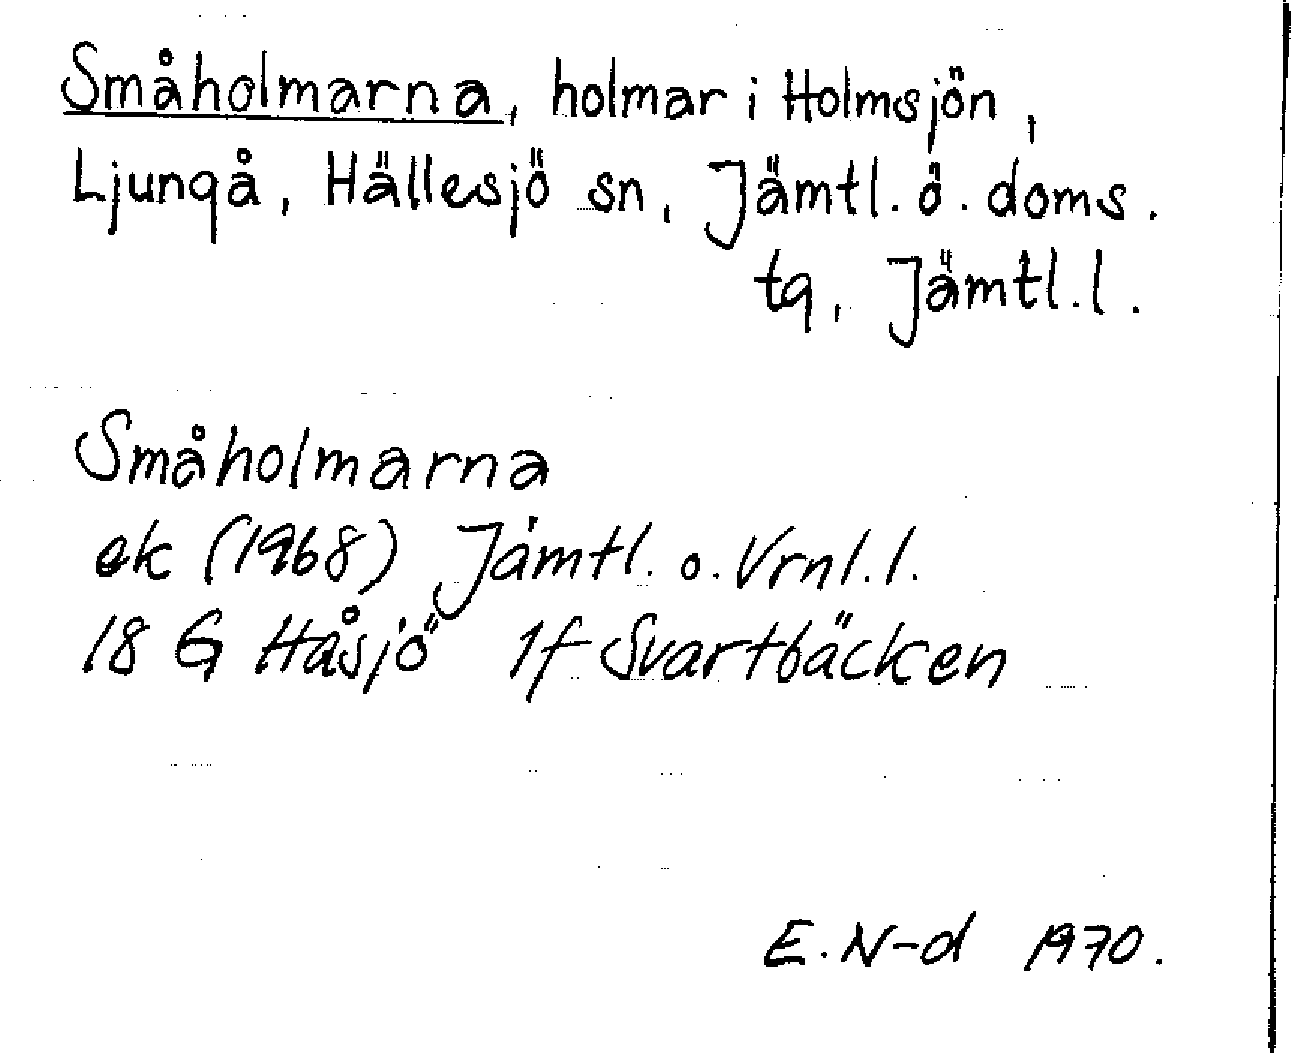 Småholmarna, holmar i Holmsjön,
Ljungå, Hällesjö sn, Jämtl. ö. doms.
tg, Jämtl. l.
Småholmarna
ek (1968) Jämtl. o. Vrnl. l.
18 G Håsjö 1f Svartbäcken
E. N-d 1970.